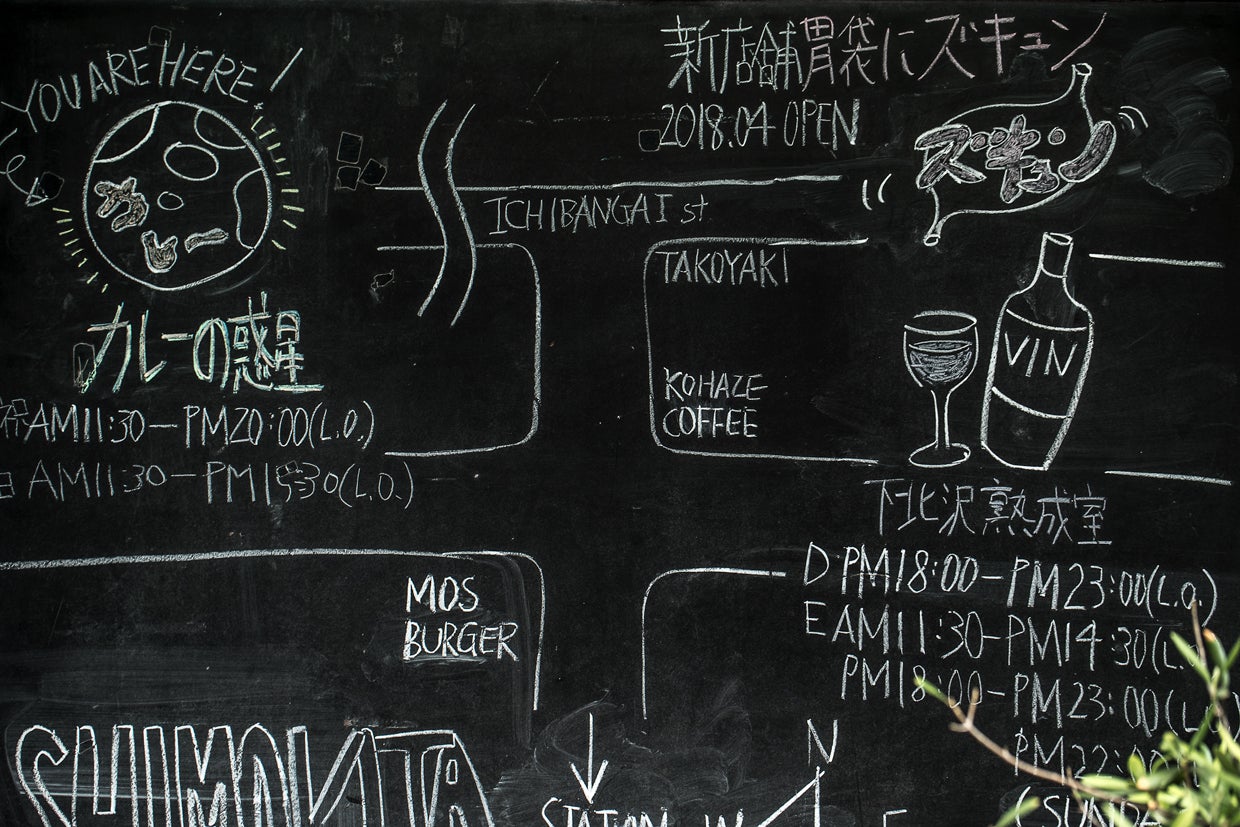 YOU ARE HERE!
カレー
カレーの惑星
祝AM11:30-PM20:00(L.O.)
日AM11:30-PM19:30(L.O.)
新店舗胃袋にズキュン
2018.04 OPEN
ズキュン
ICHIBANGAI st.
TAKOYAKI
KOHAZE
COFFEE
VIN
下北沢熟成室
D PM18:00-PM23:00(L.O.)
E AM11:30-PM14:30(L.O
PM18:00-PM23:00(L.
PM22:00
(SUNDA
MOS
BURGER
SHIMOKITA
STATION
N
W
E